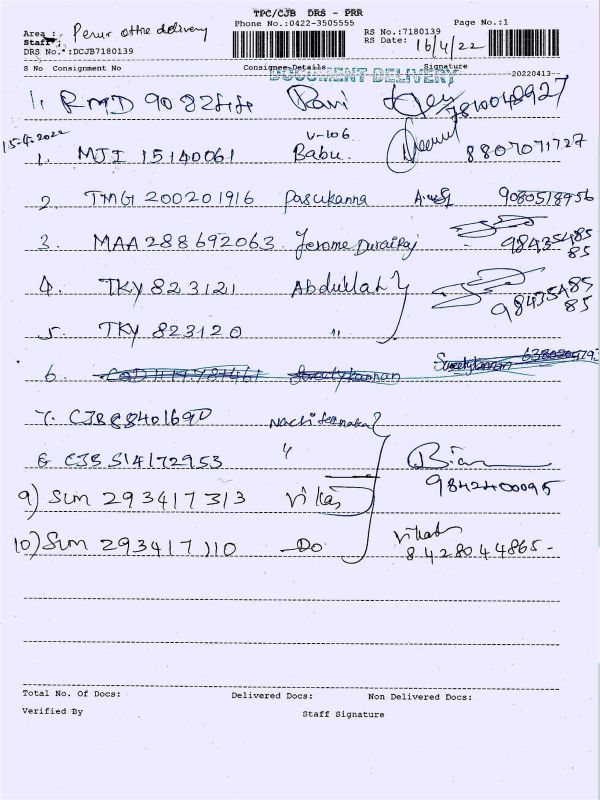 TPC/CJB DRS - PRR
Phone No.:0422-3505555 Page No.:1
Area : Perur office delivery
Staff :
RS No.:7180139
RS Date: 16/4/22
DRS No.:DCJB7180139
S No Consignment No Consignee Details Signature
DOCUMENT DELIVERY 20220413--
1. RMD 908244 Ravi 7810048927
15-4-2022
1. MJI 15140061 V-106 Babu. 8807071727
2. TMG 200201916 Pasukanna 9080518956
3. MAA 288692063 Jerome DuraiRaj 9843548585
4. TKY 823121 Abdullah 9843548585
5. TKY 823120 "
6.
7. CJB88401690
8 CJB 514172953 "
9842400095
9) Sum 293417313 Vikas
10) Sum 293417110 Do
8428044865-
Total No. Of Docs: Delivered Docs: Non Delivered Docs:
Verified By Staff Signature